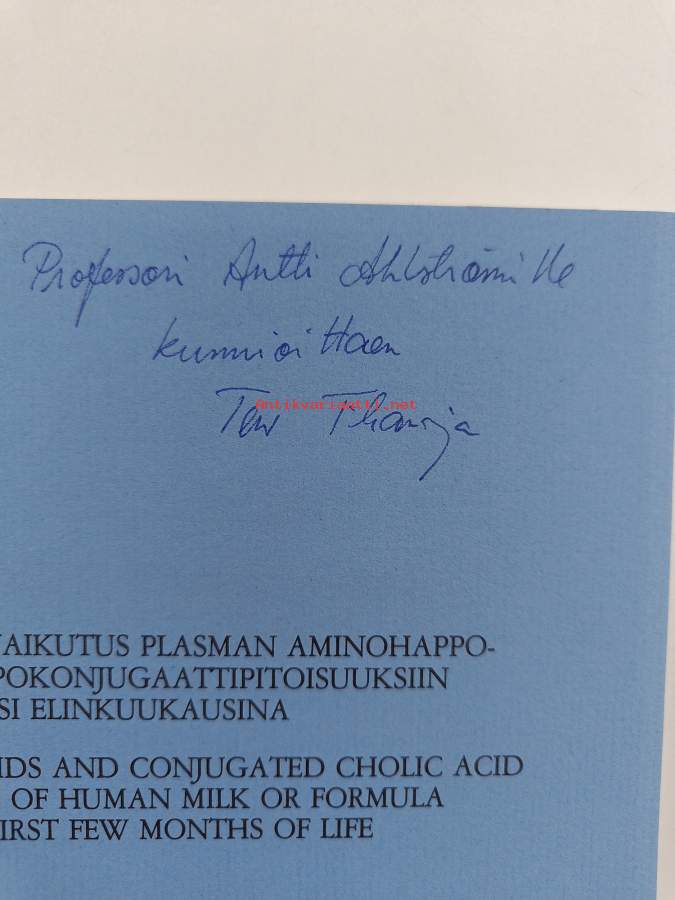 Professori Antti Ahlströmille
kunnioittaen
Antikvariaatti.net
VAIKUTUS PLASMAN AMINOHAPPO-
POKONJUGAATTIPITOISUUKSIIN
SI ELINKUUKAUSINA
IDS AND CONJUGATED CHOLIC ACID
OF HUMAN MILK OR FORMULA
FIRST FEW MONTHS OF LIFE